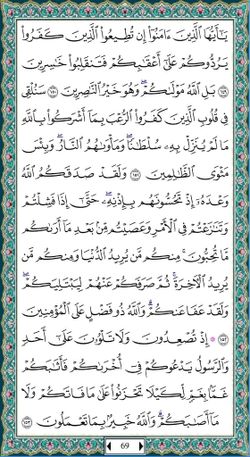 يَـٰٓأَيُّهَا ٱلَّذِينَ ءَامَنُوٓا۟ إِن تُطِيعُوا۟ ٱلَّذِينَ كَفَرُوا۟
يَرُدُّوكُمْ عَلَىٰٓ أَعْقَـٰبِكُمْ فَتَنقَلِبُوا۟ خَـٰسِرِينَ
١٤٩ بَلِ ٱللَّهُ مَوْلَىٰكُمْ ۖ وَهُوَ خَيْرُ ٱلنَّـٰصِرِينَ ١٥٠ سَنُلْقِى
فِى قُلُوبِ ٱلَّذِينَ كَفَرُوا۟ ٱلرُّعْبَ بِمَآ أَشْرَكُوا۟ بِٱللَّهِ
مَا لَمْ يُنَزِّلْ بِهِۦ سُلْطَـٰنًا ۖ وَمَأْوَىٰهُمُ ٱلنَّارُ ۚ وَبِئْسَ
مَثْوَى ٱلظَّـٰلِمِينَ ١٥١ وَلَقَدْ صَدَقَكُمُ ٱللَّهُ
وَعْدَهُۥٓ إِذْ تَحُسُّونَهُم بِإِذْنِهِۦ ۖ حَتَّىٰٓ إِذَا فَشِلْتُمْ
وَتَنَـٰزَعْتُمْ فِى ٱلْأَمْرِ وَعَصَيْتُم مِّنۢ بَعْدِ مَآ أَرَىٰكُم
مَّا تُحِبُّونَ ۚ مِنكُم مَّن يُرِيدُ ٱلدُّنْيَا وَمِنكُم مَّن
يُرِيدُ ٱلْـَٔاخِرَةَ ۚ ثُمَّ صَرَفَكُمْ عَنْهُمْ لِيَبْتَلِيَكُمْ ۖ
وَلَقَدْ عَفَا عَنكُمْ ۗ وَٱللَّهُ ذُو فَضْلٍ عَلَى ٱلْمُؤْمِنِينَ
١٥٢ ۞ إِذْ تُصْعِدُونَ وَلَا تَلْوُۥنَ عَلَىٰٓ أَحَدٍ
وَٱلرَّسُولُ يَدْعُوكُمْ فِىٓ أُخْرَىٰكُمْ فَأَثَـٰبَكُمْ
غَمًّۢا بِغَمٍّ لِّكَيْلَا تَحْزَنُوا۟ عَلَىٰ مَا فَاتَكُمْ وَلَا
مَآ أَصَـٰبَكُمْ ۗ وَٱللَّهُ خَبِيرٌۢ بِمَا تَعْمَلُونَ ١٥٣
69